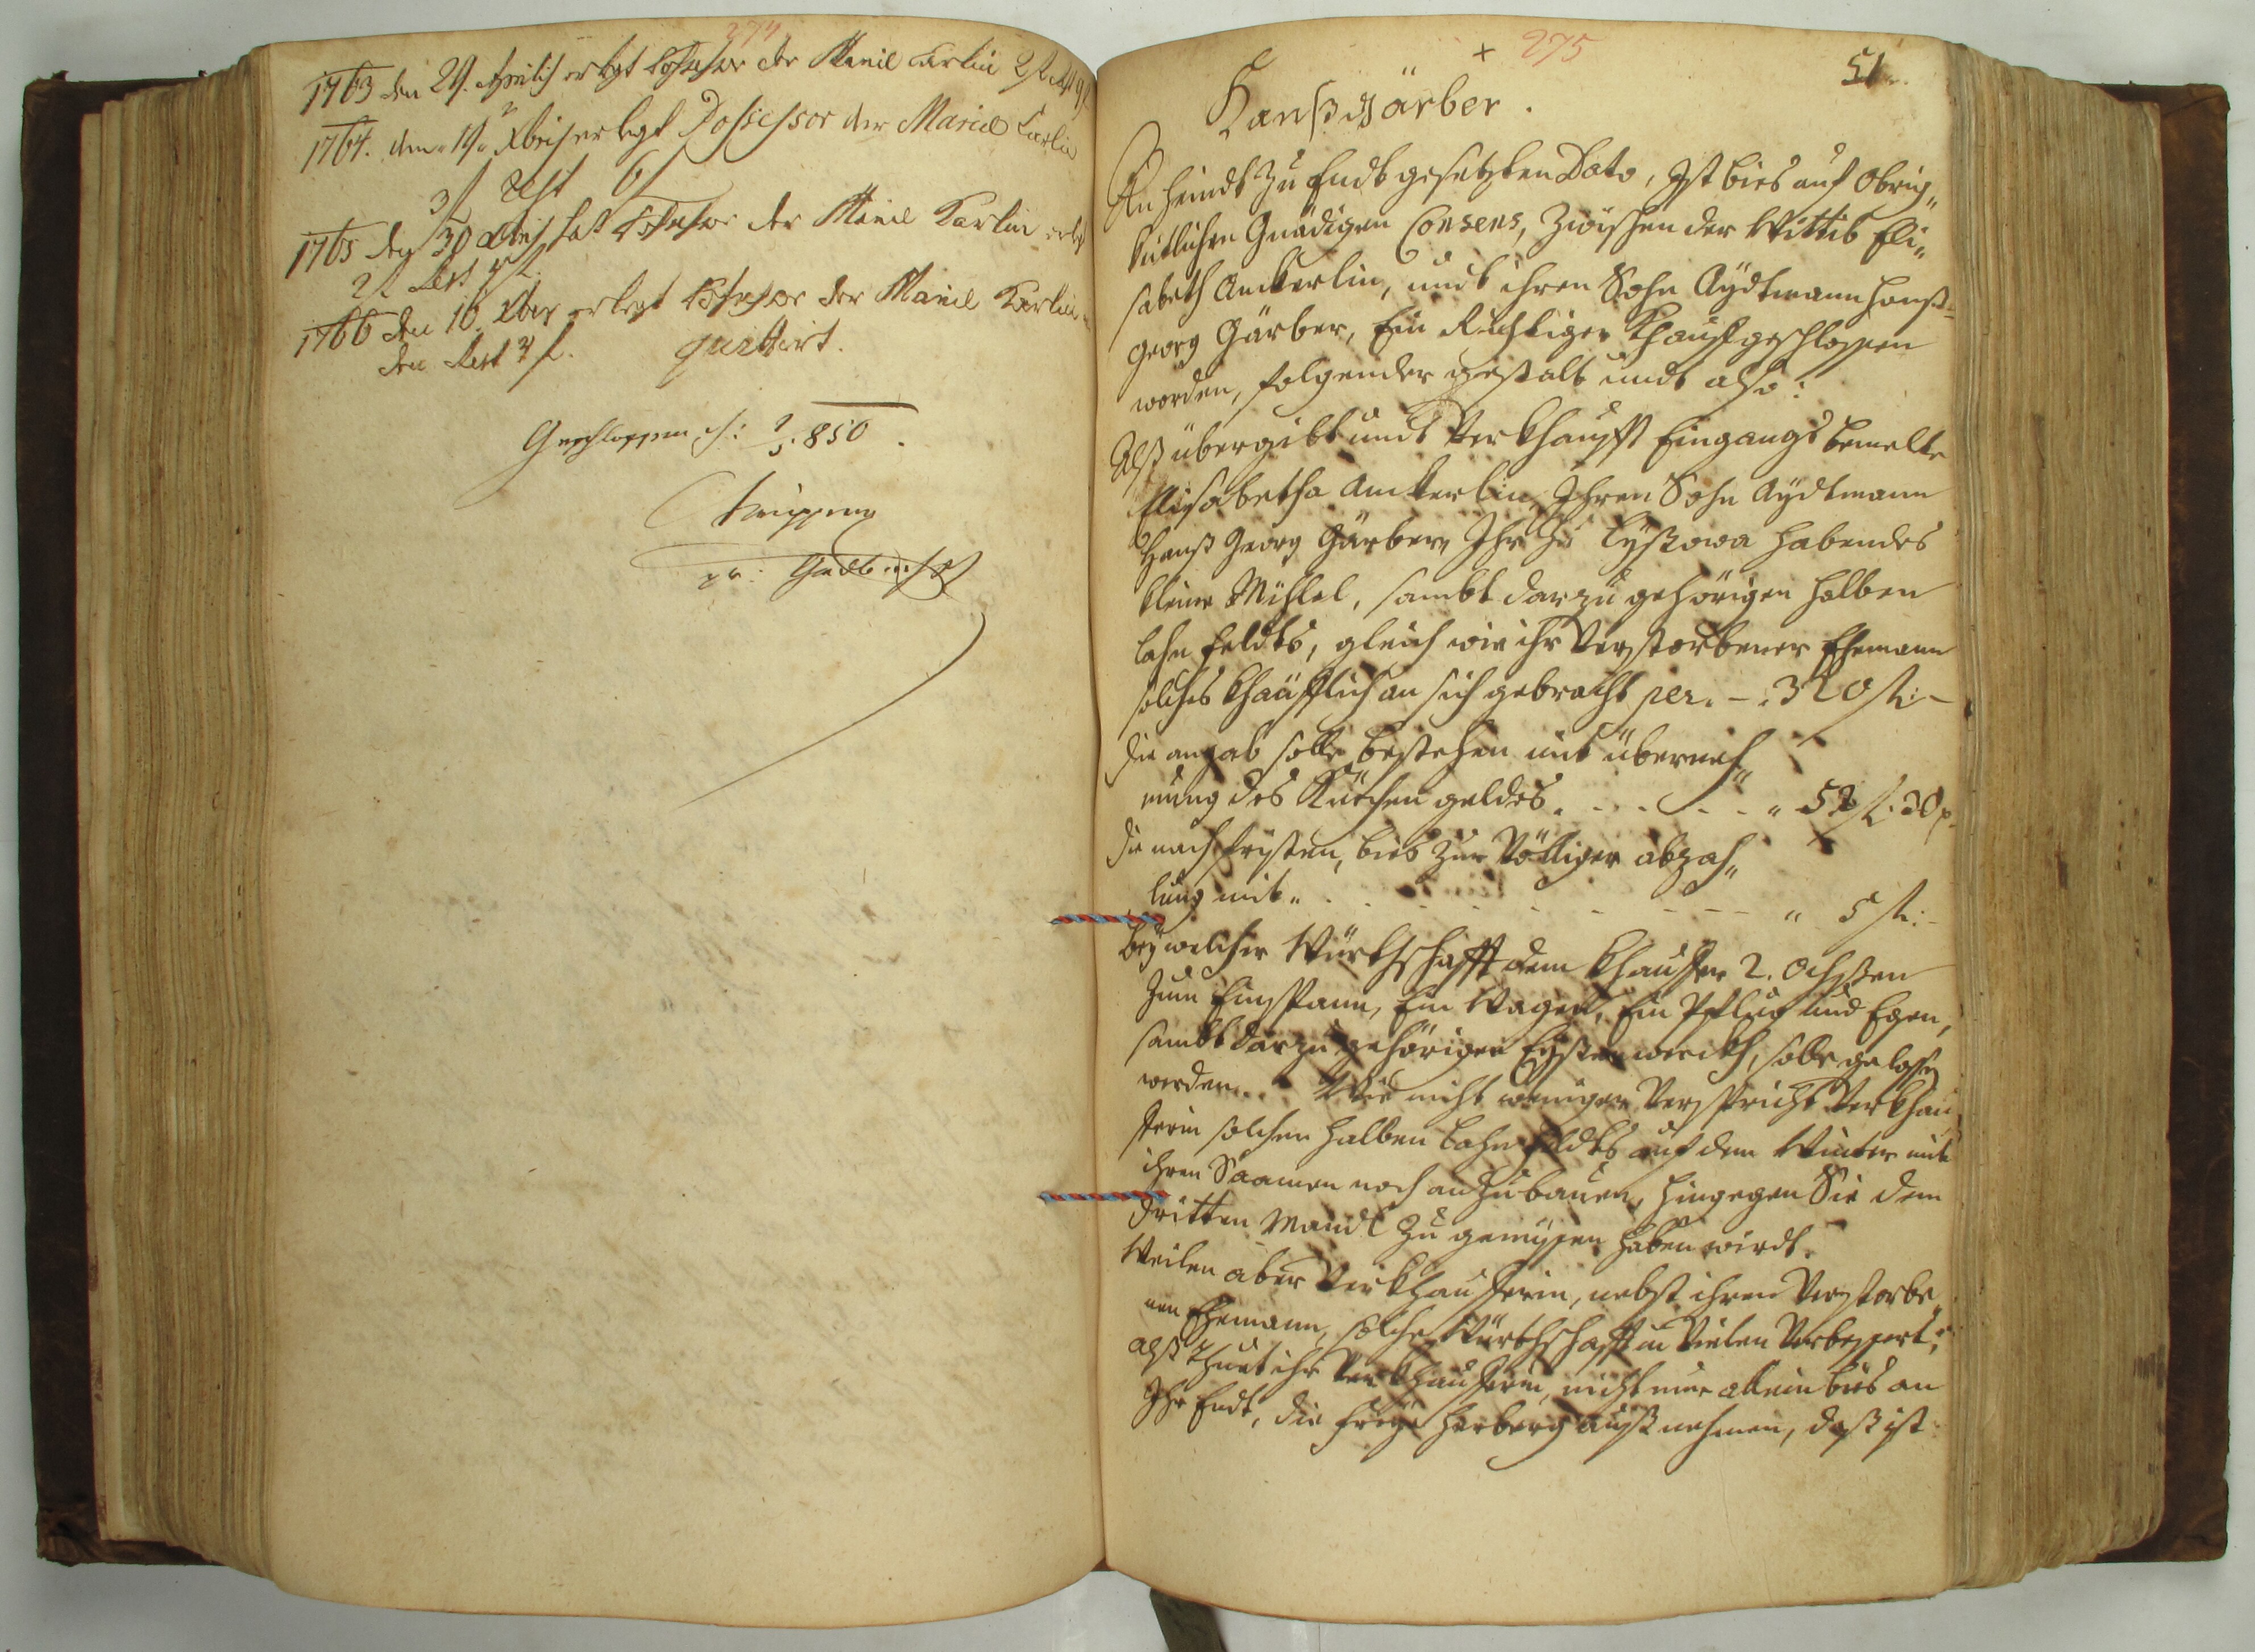 274
1763 den 29. Aprilis erlegt Possessor der Mariel Carlin 2 f Rest 9 f
1764. den 19 Xbris erlegt Possessor der Mariel Carlin
3 f Rest 6 f
1765 den 30 Xbris hat Possessor der Mariel Karlin erlegt
2 f Rest 4 f.
1766 den 16. Xber erlegt Possessor der Mariel Karlin
den Rest 4 f. quittirt.
Geschlossen
850.
+ 275
51
Hanß Gärber.
An heindt zu Endt gesetzten Dato, Ist bies auf Obrig„
keitlichen Gnädigen Consens, Zwischen der Wittib Eli„
sabeth Ankerlin, undt ihren Sohn Aydtmann Hanß
Georg Gärber, Ein Richtiger Khauff geschlossen
worden, folgender gestalt undt also:
Alß übergibt undt Verkhaufft Eingangs bemelte
Elisabetha Ankerlin Ihren Sohn Aydtmann
Hanß Georg Gärber, Ihr Zu Lyßowa habendes
kleine Mühlel, sambt darzu gehörigen halben
Lahn Feldts, gleich wie ihr Verstorbener Ehemann
solches khäufflich an sich gebracht per. – . 320 fl: –
Die angab solle bestehen mit überneh„
mung des Kürchen geldes. . . . . . „ 52 fl. 30 x.
Die nach fristen, bies zur Völliger abzah„
lung mit „ . . . . . . . . „ 5 fl: –
Bey welcher Würthschafft dem Khauffer 2. Ochßen
zum Einspann, Ein Wagen, Ein Pflug und Egen,
sambt darzu gehörigen Eyßenwerckh, solle gelassen
werden. Wie nicht weniger Verspricht Verkhau„
fferin solchen halben Lahn Feldts auf dem Winter mit
ihren Saamen noch anzubauen, hingegen Sie dem
dritten Mandl Zu genüssen haben wirdt.
Weilen aber Verkhaufferin, nebst ihren Verstorbe„
nen Ehemann, solche Würthschafft in Vielen Verbessert,
alß thuet ihr Verkhaufferin, nicht nur allein bies an
Ihr Endt, die freye Herberg auß nehmen, daß ist